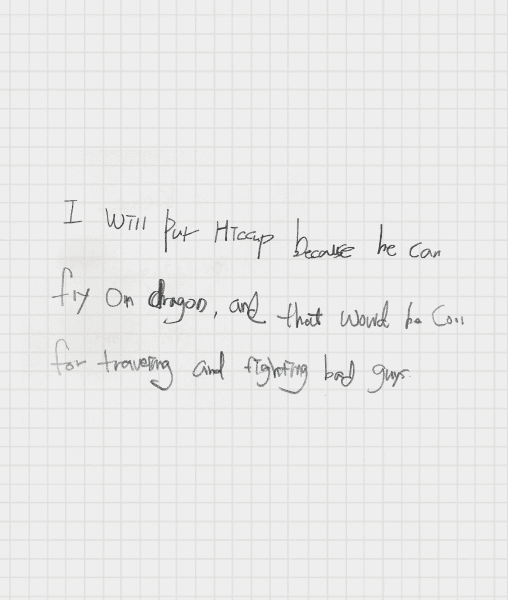 I will put Hiccup because he can
fly on dragon, and that would be cool
for traveing and fighting bad guys.